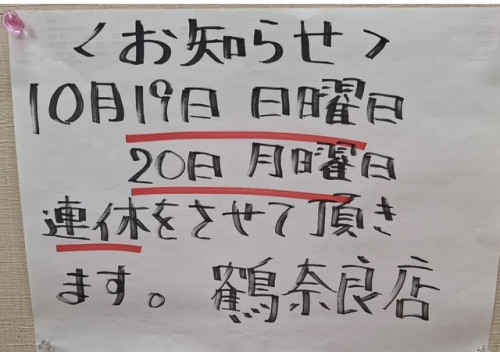 <お知らせ>
10月19日 日曜日
20日 月曜日
連休をさせて頂き
ます。 鶴奈良店